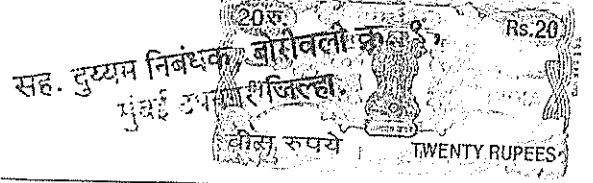 20रु. Rs.20
सह. दुय्यम निबंधक, बोरीवली क्र.
मुंबई उपनगर जिल्हा.
बीस रुपये TWENTY RUPEES